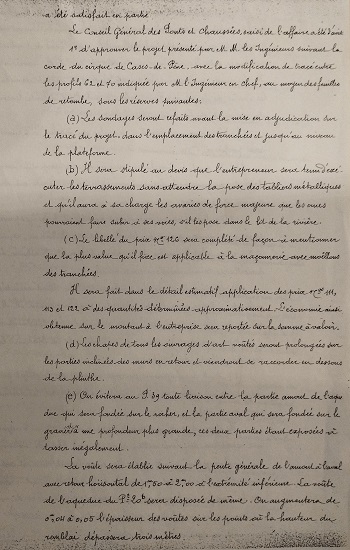 a été satisfait en partie.
Le Conseil Général des Ponts et Chaussées, saisi de l'affaire a été d'avis
1° d'approuver le projet présenté par M.M. les Ingénieurs suivant la
corde du cirque de Cases-de-Pène, avec la modification de tracé entre
les profils 62 et 70 indiquée par M. l'Ingénieur en Chef, au moyen des feuilles
de retombe, sous les réserves suivantes:
(a) Les sondages seront refaits avant la mise en adjudication sur
le tracé du projet, dans l'emplacement des tranchées et jusqu'au niveau
de la plateforme.
(b) Il sera stipulé au devis que l'entrepreneur sera tenu d'exé
cuter les terrassements sans attendre la pose des tabliers métalliques
et qu'il aura à sa charge les avaries de force majeure que les eaux
pourraient faire subir à ses voies, s'il les pose dans le lit de la rivière.
(c) Le libellé du prix n° 126 sera complété de façon à mentionner
que la plus value qu'il fixe est applicable à la maçonnerie avec moëllons
des tranchées.
Il sera fait dans le détail estimatif application des prix n°s 111,
113 et 122 à des quantités déterminées approximativement. L'économie ainsi
obtenue sur le montant à l'entreprise sera reportée sur la somme à valoir.
(d) Les chapes de tous les ouvrages d'art voûtés seront prolongées sur
les parties inclinées des murs en retour et viendront se raccorder en dessous
de la plinthe.
(e) On évitera au P. 89 toute liaison entre la partie amont de l'aque
duc qui sera fondée sur le rocher, et la partie aval qui sera fondée sur le
gravier à une profondeur plus grande, ces deux parties étant exposées à
tasser inégalement.
La voûte sera établie suivant la pente générale de l'amont à l'aval
avec retour horizontal de 1m,50 à 2m,00 à l'extrémité inférieure. La voûte
de l'aqueduc du P. 20 sera disposée de même. On augmentera de
0m,04 à 0,05 l'épaisseur des voûtes sur les points où la hauteur du
remblai dépassera trois mètres.